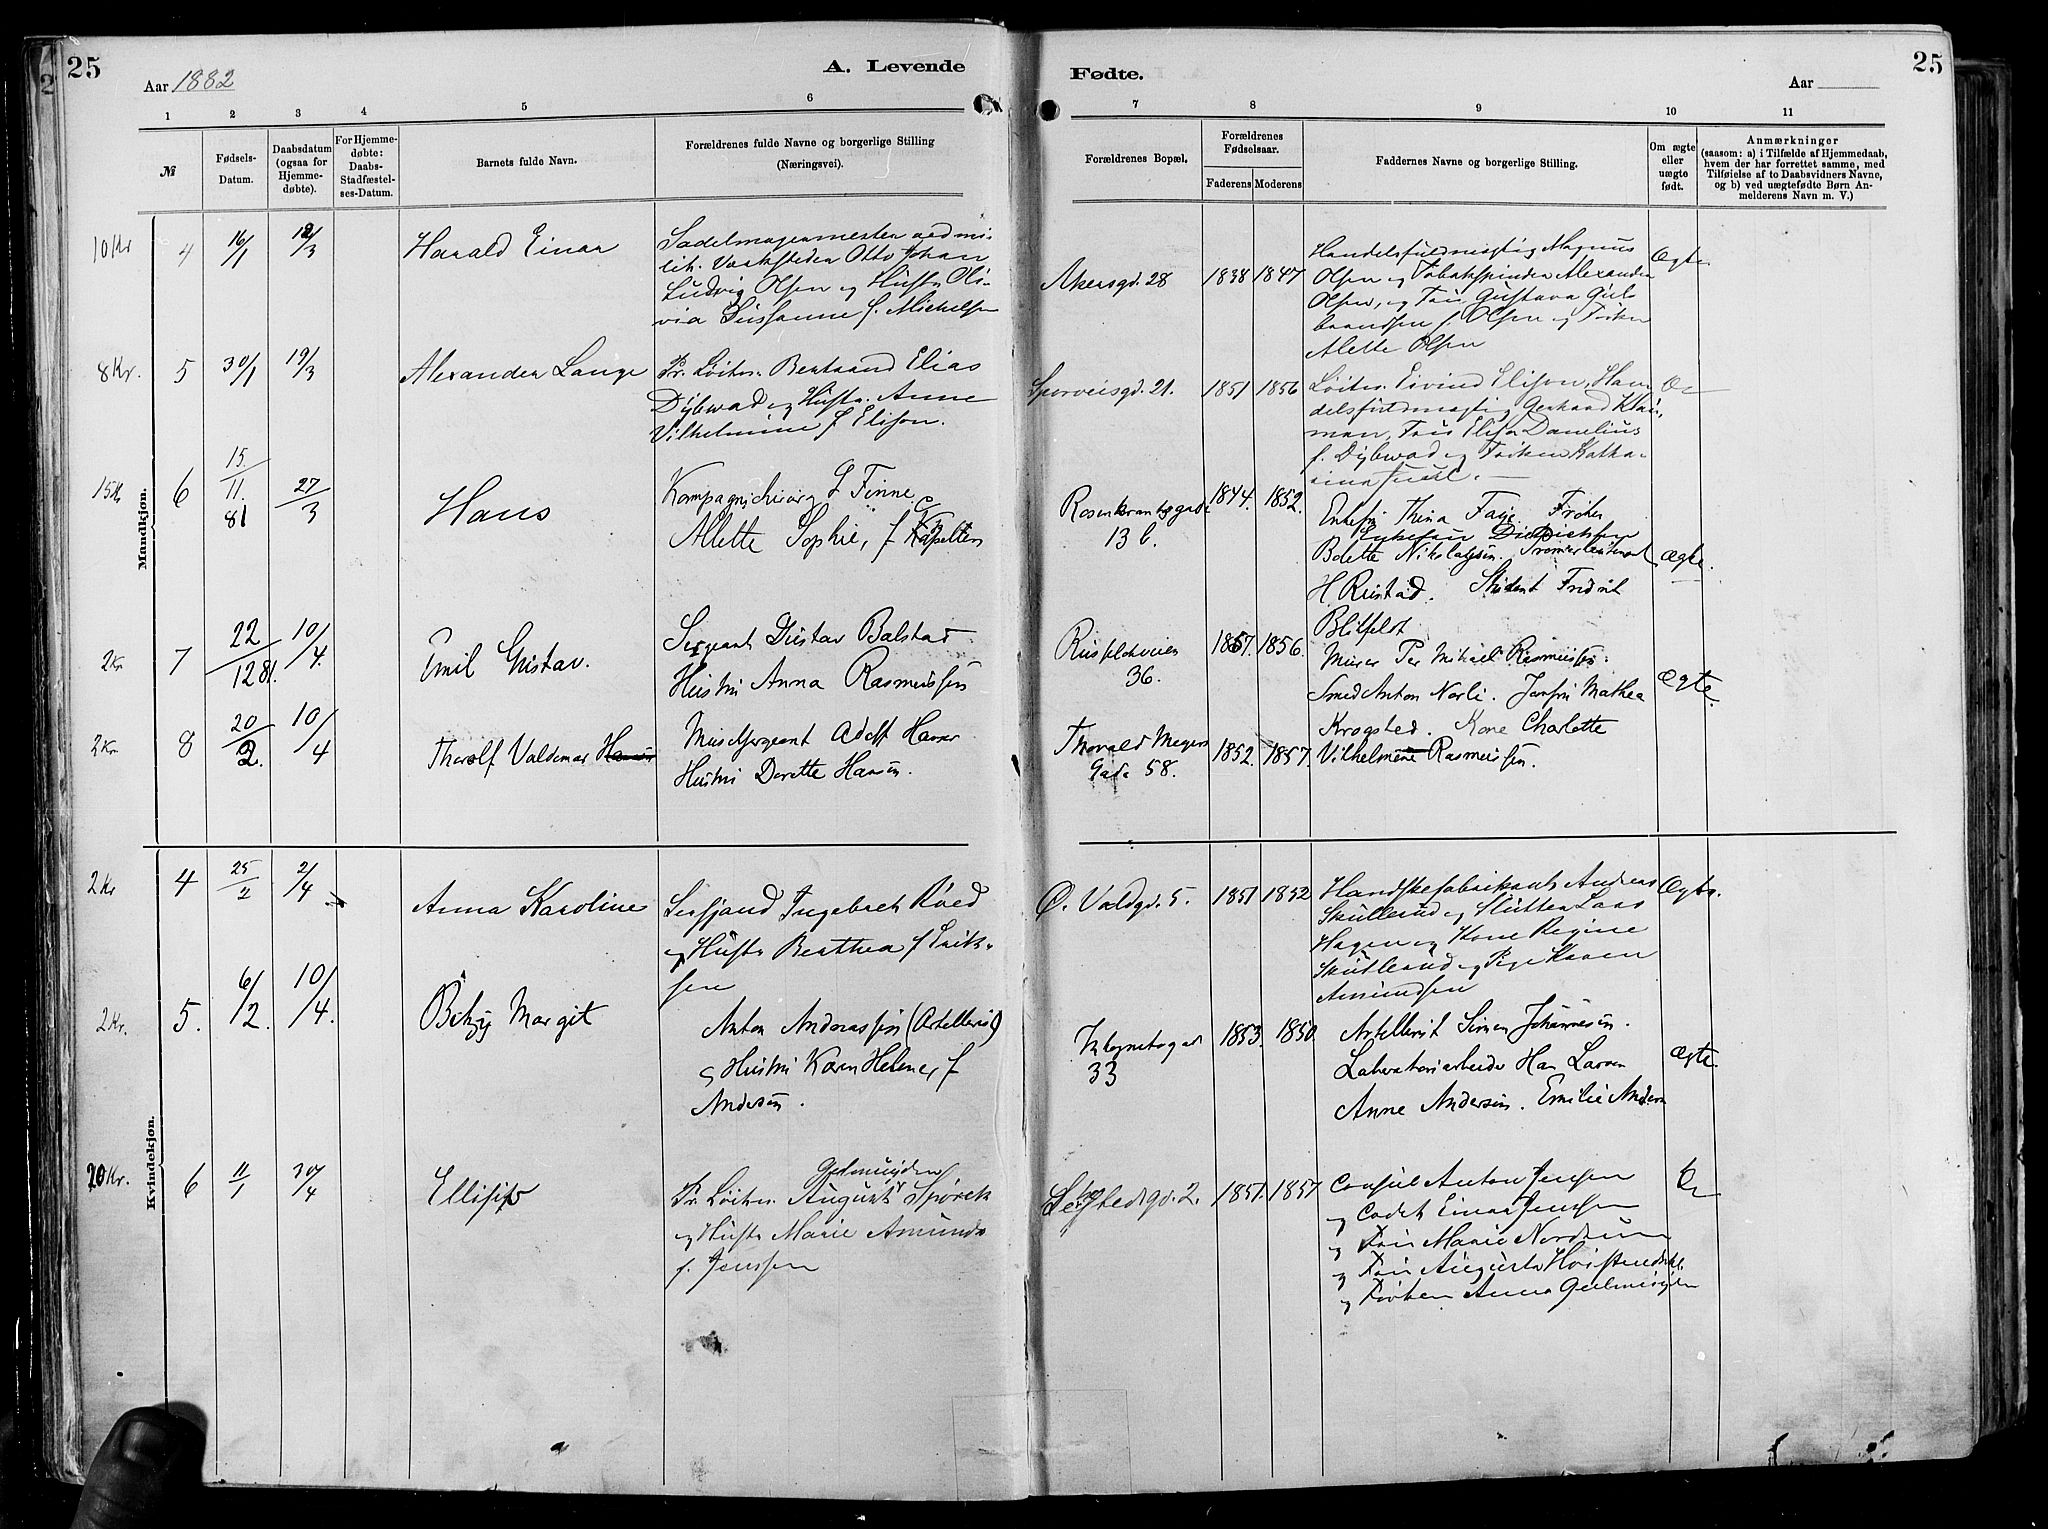 25
Aar 1882
A. Levende
Fødte.
Aar
25
1 2 3 4 5 6 7 8 9 10 11
№
Fødsels-
Datum.
Daabsdatum
(ogsaa for
Hjemme-
døbte).
For Hjemme-
døbte:
Daabs-
Stadfæstel-
ses-Datum.
Barnets fulde Navn.
Forældrenes fulde Navne og borgerlige Stilling
(Næringsvei).
Forældrenes Bopæl.
Forældrenes
Fødselsaar.
Faderens Moderens
Faddernes Navne og borgerlige Stilling.
Om ægte
eller
uægte
født.
Anmærkninger
(saasom: a) i Tilfælde af Hjemmedaab,
hvem der har forrettet samme, med
Tilføielse af to Daabsvidners Navne,
og b) ved uægtefødte Børn An-
melderens Navn m. V.)
Mandkjøn.
10 Kr 4 16/1 12/3
Harald Einar
Sadelmagermester ved mi-
lit. Værksteder Otto Johan
Ludvig Olsen og Hustr Oli-
via Sussanne f. Michelsen
Akersgd. 28
1838 1847
Handelsfuldmægtig Magnus
Olsen og Tobakspinder Alexander
Olsen, og Fru Gustava Gul-
brandsen f. Olsen og Frøken
Alette Olsen
Ægte
8 Kr. 5 30/1 19/3
Alexander Lange
Pr. Løitn. Bertrand Elias
Dybwad og Hustr. Anne
Vilhelmine f Elison.
Sporveisgd. 21.
1851 1856
Løitn. Eivind Elison, Han-
delsfuldmægtig Gerhard Kla-
man, Fru Elisa Danelius
f. Dybwad og Frøken Katha-
rina Juul.
Æ
15 Kr 6 15/11. 81 27/3
Hans
Kompagnichirurg L Finne
Allette Sophie, f Kapelten
Rosenkrantzgade
13 b.
1844. 1852.
Enkefru Thina Faye. Frøken
Enkefru Diedrichsen
Bolette Nikolaysen. Premierleitnant
H. Rustad. Student Fridrik
Blilfeldt
Ægte.
2 Kr 7 22/12 81. 10/4.
Emil Gustav.
Sergeant Gustav Balstad
Hustru Anna Rasmussen
36.
1857. 1856.
Murer Per Mikael Rasmussen.
Smed Anton Narli. Jomfru Mathea
Krogsted. Kone Charlotte
Vilhelmine Rasmussen.
Ægte.
2 Kr 8 20/2. 10/4
Thorolf Valdemar
Musikfsergeant Adolf Hansen
Hustru Dorette Hansen.
Thorvald Meyers
Gade 58.
1852. 1857.
Kvindekjøn.
2 Kr 4 25/2 2/4
Anna Karoline
Serjeand Ingebret Røed
og Hustr Berthea f Erik-
sen
Ø. Voldgd. 5.
1851 1852
Handskefabrikant Andreas
Skullerud og Slutter Lars
Hagen og Kone Regine
Skullerud og Pige Karen
Amundsen
Ægte.
2 Kr. 5. 6/2. 10/4.
Betzy Margit
Anton Andreassen (Artillerist)
& Hustru Karen Helene, f
Andersen.
33
1853. 1850.
Artillerist Simen Johannesen.
Laboratoriearbeider Han Larsen
Anne Andersen. Emilie Andersen
Ægte.
20 Kr. 6 11/1 30/4
Ellisif
Gelmuyden
Pr. Løitn. August Spørck
og Hustr Marie Amunda
f. Jenssen
2.
1851. 1857
Consul Anton Jenssen
og Cadet Einar Jenssen
og Frue Marie Nordrum
og Frue Augusta
og Frøken Anna Gelmuyden
Æ